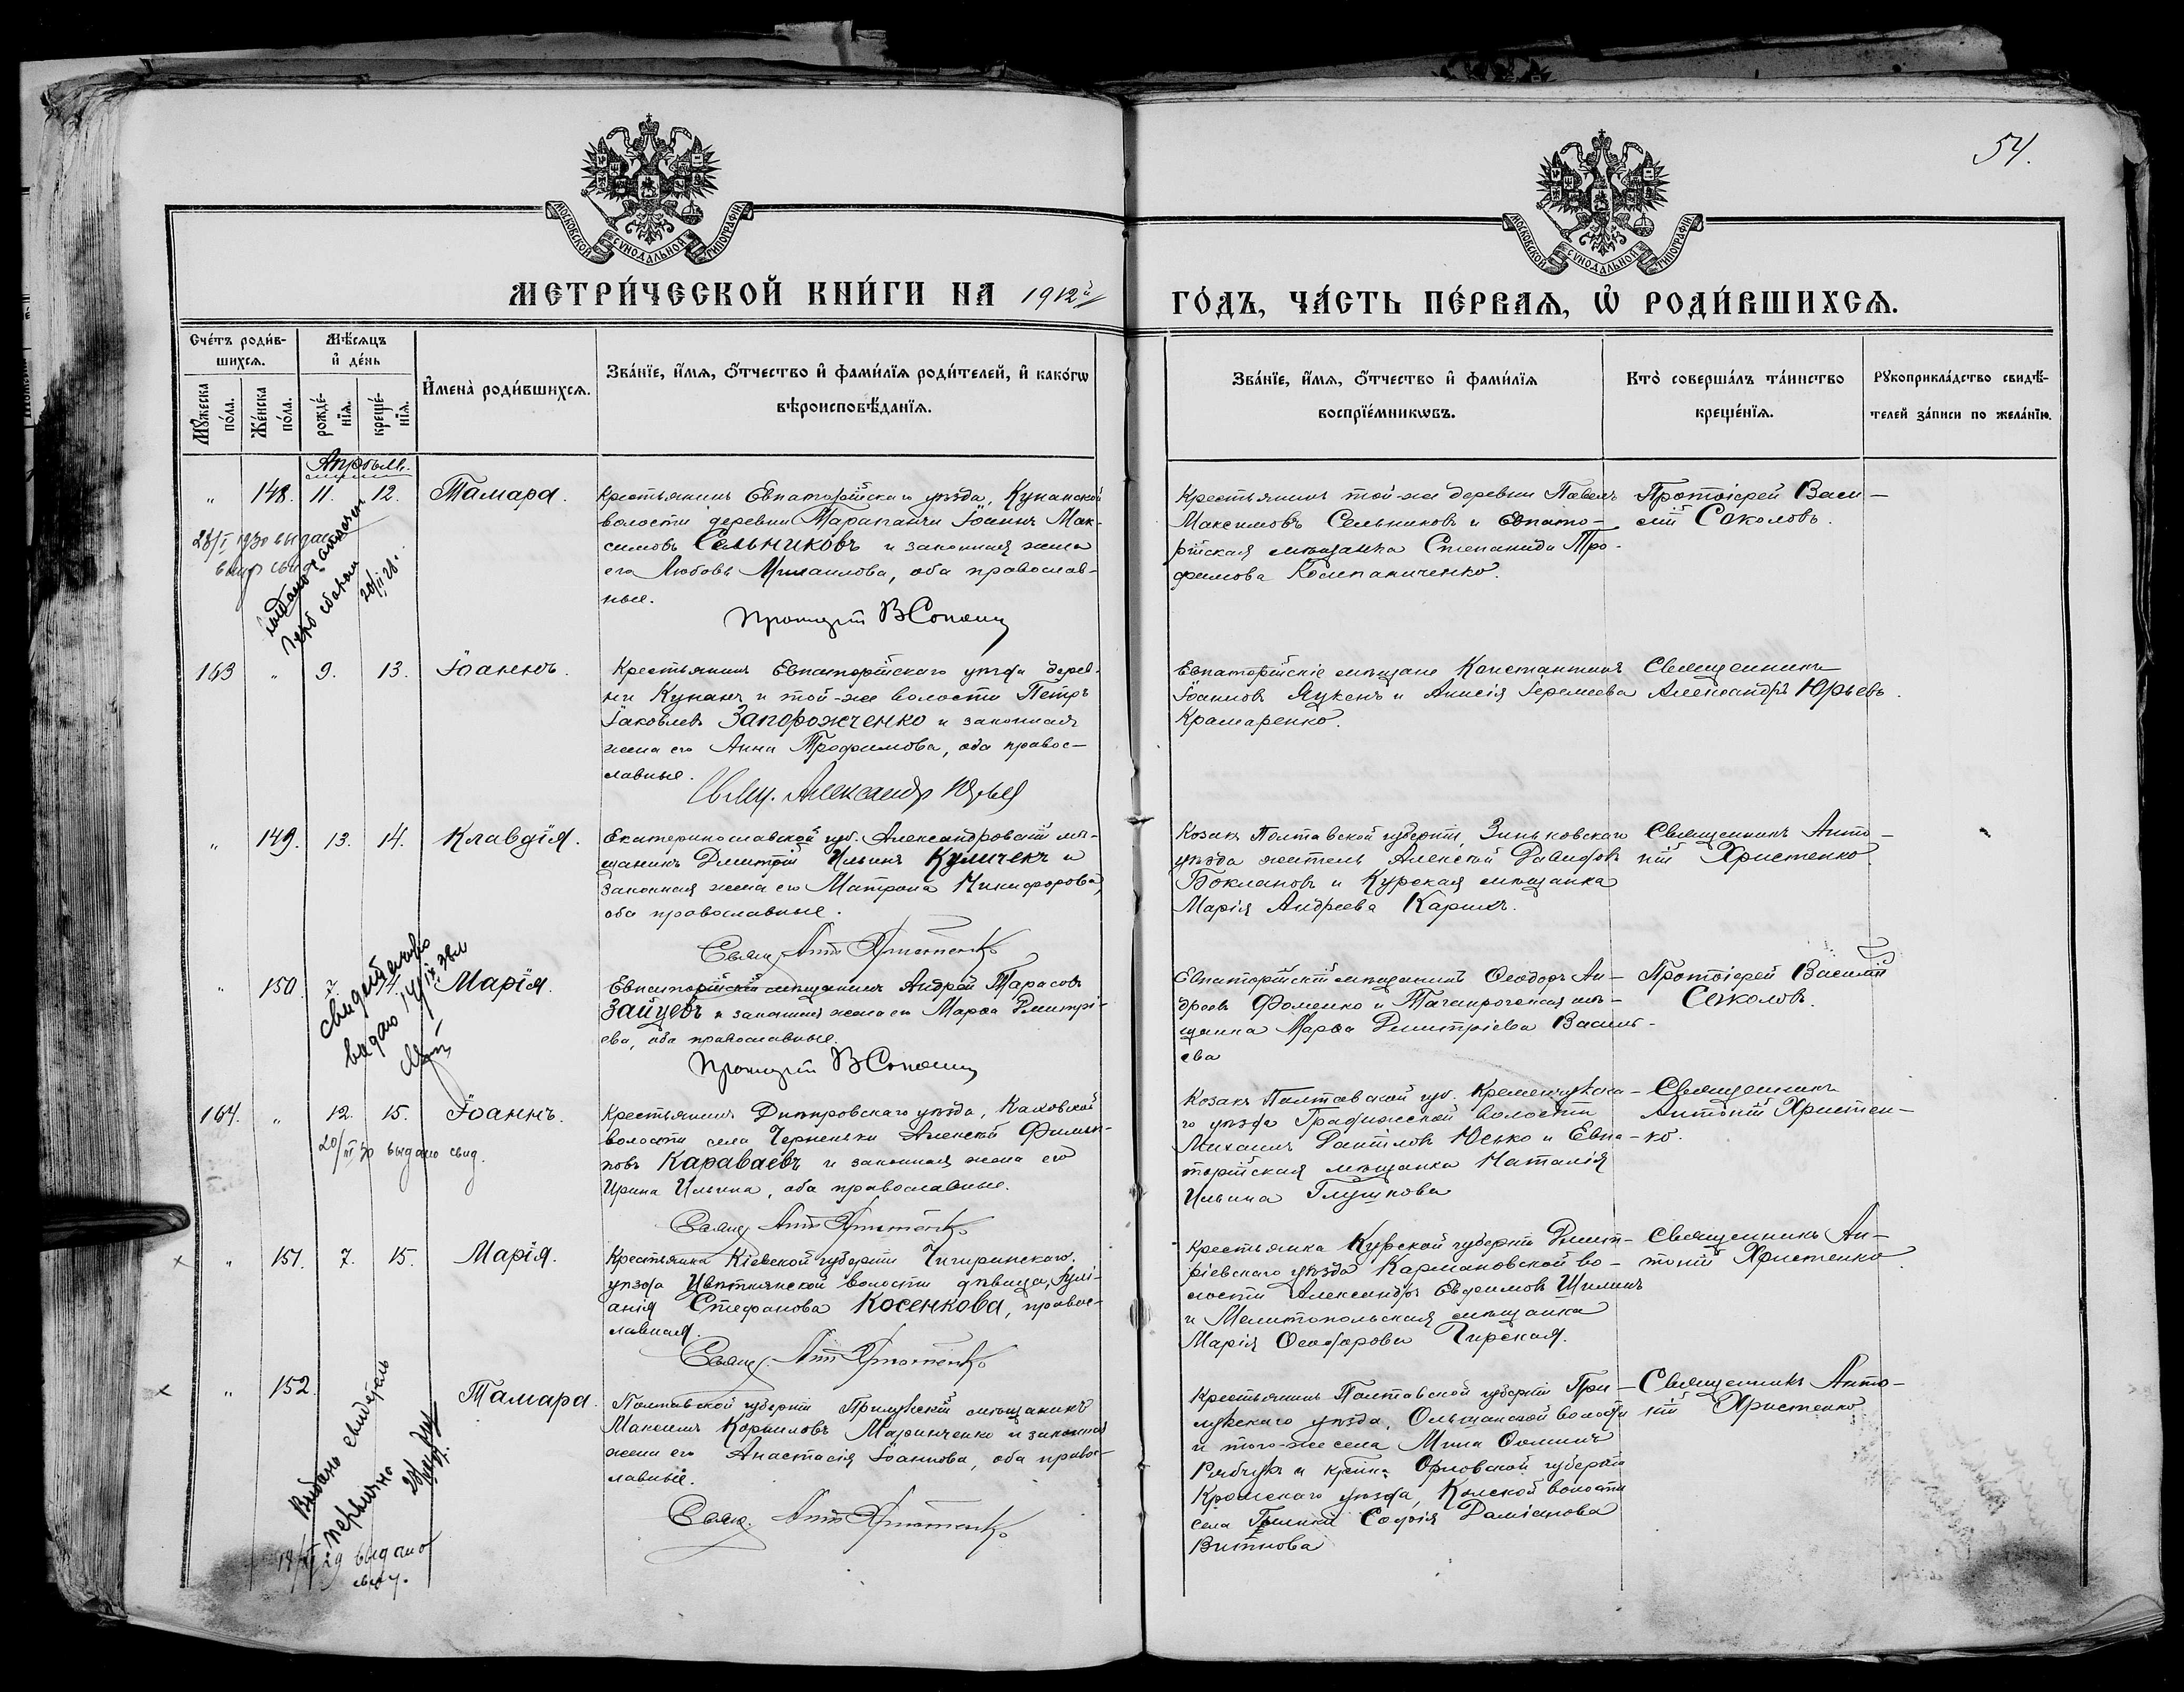 54.
МОСКОВСКОЙ СѴНОДАЛЬНОЙ ТИПОГРАФІИ
МОСКОВСКОЙ СѴНОДАЛЬНОЙ ТИПОГРАФІИ
МЕТРИ́ЧЕСКОЙ КНИ́ГИ НА 1912й
ГО́ДЪ, ЧА́СТЬ ПЕ́РВАѦ, Ѡ҆ РОДИ́ВШИХСѦ.
Сче́тъ роди́в-
шихсѧ.
Мꙋ́жеска
по́ла.
Же́нска
по́ла.
Мѣ́сѧцъ
и҆ де́нь
рожде́-
нїѧ.
креще́-
нїѧ.
И҆мена̀ роди́вшихсѧ.
Зва́нїе, и҆́мѧ, ѻ҆́тчество и҆ фами́лїѧ роди́телей, и҆ како́гѡ
вѣроисповѣ́данїѧ.
Зва́нїе, и҆́мѧ, ѻ҆́тчество и҆ фами́лїѧ
воспрїе́мникѡвъ.
Кто̀ соверша́лъ та́инство
креще́нїѧ.
Рꙋкоприкла́дство свидѣ́-
телей за́писи по жела́нїю.
Апрѣль.
" 148. 11. 12. Тамара.
Крестьянинъ Евпаторійскаго уѣзда, Кунанской
волости деревни Тарапанчи Іоаннъ Мак-
симовъ Сельниковъ и законная жена
его Любовь Михаилова, оба православ-
ные.
Протоіерей В Соколов
Крестьянинъ той-же деревни Павелъ
Максимовъ Сельниковъ и Евпато-
рійская мѣщанка Степанида Тро-
фимова Компаниченко.
Протоіерей Васи-
лій Соколовъ.
28/I 1930 выдано
163 " 9. 13. Іоаннъ.
Крестьянинъ Евпаторійскаго уѣзда дерев-
ни Кунанъ и той-же волости Петръ
Іаковлевъ Запорожченко и законная
жена его Анна Трофимова, оба правос-
лавные.
Свящ. Александр Юрьев
Евпаторійскіе мѣщане Константинъ
Іоанновъ Яценъ и Анисія Іеремеева
Крамаренко.
Священникъ
Александръ Юрьевъ.
" 149. 13. 14. Клавдія.
Екатеринославской губ. Александровскій мѣ-
щанинъ Дмитрій Ильинъ Куличекъ и
законная жена его Матрона Никифорова,
оба православные.
Свящ. Ант Христенко
Козакъ Полтавской губерніи, Зиньковскаго
уѣзда житель Алексѣй Давидовъ
Бокланов и Курская мѣщанка
Марія Андреева Каринъ.
Священникъ Анто-
ній Христенко.
" 150. Марія.
Евпаторійскій мѣщанинъ Андрей Тарасовъ
Зайцевъ и законная жена его Марѳа Дмитрі-
ева, оба православные.
Протоіерей В Соколов
Евпаторійскій мѣщанинъ Ѳеодоръ Ан-
дреевъ Фоменко и Таганрогская мѣ-
щанка Марѳа Дмитріева Василь-
ева
Протоіерей Василій
Соколовъ.
свидѣтельство
видано 14/IX 38
164. " 12. 15. Іоаннъ.
20/III 30 выдано свид.
Крестьянинъ Днѣпровскаго уѣзда, Каховской
волости села Чернянки Алексѣй Филип-
повъ Караваевъ и законная жена его
Ирина Ильина, оба православные.
Свящ Ант Христенко
Козакъ Полтавской губ. Кременчугска-
го уѣзда Градижской волости
Михаилъ Даніиловъ Юсько и Евпа-
торійская мѣщанка Наталія
Ильина Глушкова
Священникъ
Антоній Христен-
ко.
× " 151. 7. 15. Марія.
Крестьянка Кіевской губерніи Чигиринскаго
уѣзда Цвѣтнянской волости дѣвица, Іулі-
анія Стефанова Косенкова, правос-
лавная.
Свящ. Ант Христенко
Крестьянка Курской губерніи Дмит-
ріевскаго уѣзда Кармановской во-
лости Александръ Евфимовъ Шилинъ
и Мелитопольская мѣщанка
Марія Ѳеодорова Чирская.
Священникъ Ан-
тоній Христенко
× " 152. Тамара.
Полтавской губерніи Прилукскій мѣщанинъ
Максимъ Корниловъ Маринченко и законная
жена его Анастасія Іоаннова, оба право-
славные.
Свящ. Ант Христенко
Крестьянинъ Полтавской губерніи При-
лукскаго уѣзда, Ольшанской волости
и того-же села Мина Ѳоминъ
Рябчукъ и кр-ка Орловской губерніи
Кромскаго уѣзда, Колской волости
села София Даміанова
Витнова
Священникъ Анто-
ній Христенко
Видано свидетель
первично
18/II 29 выдано
свид.